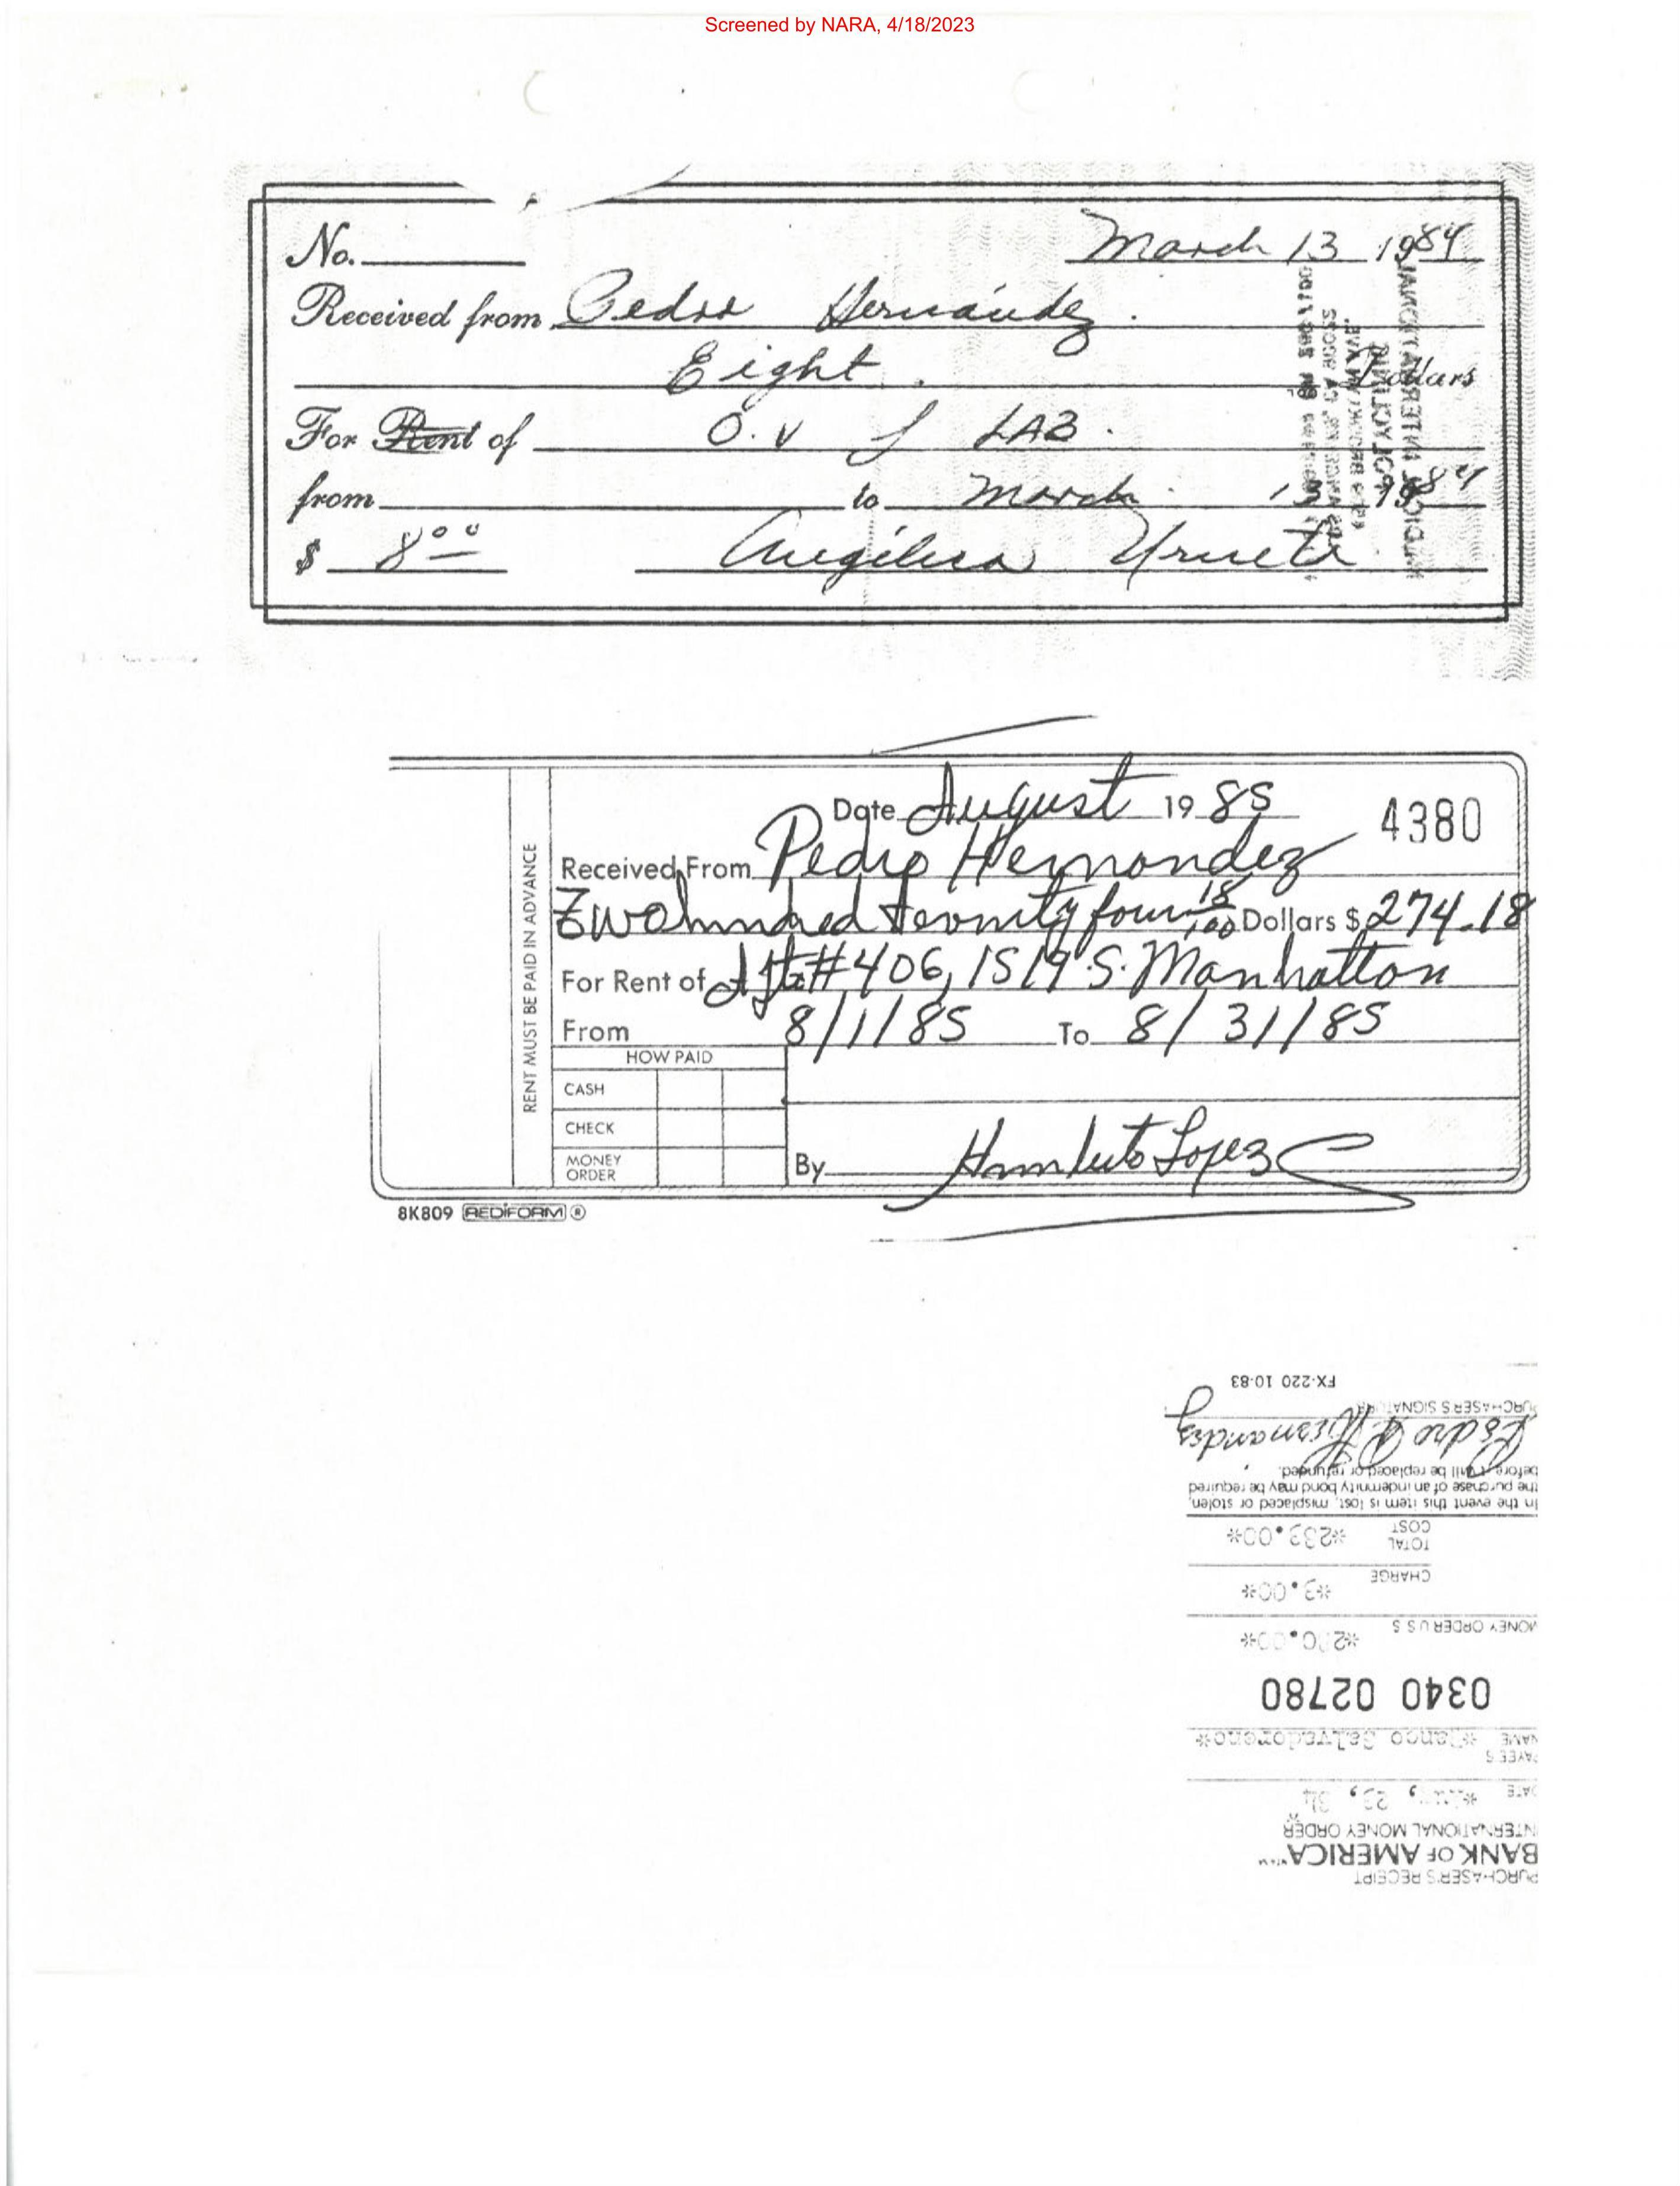 Screened by NARA, 4/18/2023
No.
March 13 1984
Received from Pedro Hernández.
Eight. Dollars
For Rent of O.V LAB.
from to March. 13 1984
$ 8.00 Angélica Urueta
POLYCLINIC
Date August 19 85 4380
Received From Pedro Hernandez
Dollars $ 274.18
For Rent of Apt #406, 1519 S. Manhattan
From 8/1/85 To 8/31/85
RENT MUST BE PAID IN ADVANCE
HOW PAID
CASH
CHECK
MONEY ORDER
By Humberto Lopez
8K809 REDIFORM ®
PURCHASER'S RECEIPT
BANK OF AMERICA
INTERNATIONAL MONEY ORDER
DATE 23, 84
PAYEE'S NAME *Banco Salvadoreno*
0340 02780
MONEY ORDER U S $
CHARGE *3.00*
TOTAL COST *233.00*
In the event this item is lost, misplaced or stolen,
the purchase of an indemnity bond may be required
before it will be replaced or refunded.
Pedro A. Hernandez
PURCHASER'S SIGNATURE
FX-220 10-83